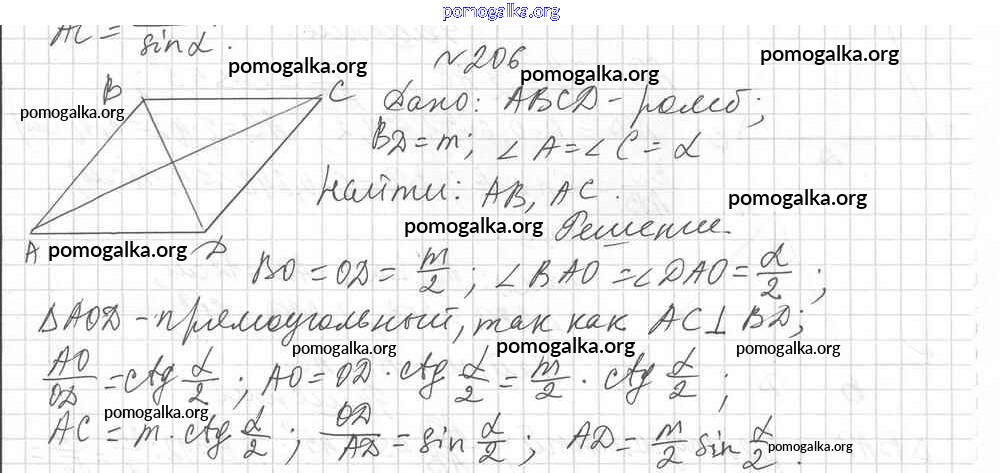 pomogalka.org
AC = sin α.
№ 206
pomogalka.org pomogalka.org pomogalka.org
B C Дано: ABCD - ромб;
pomogalka.org
BD = m; ∠A = ∠C = α
Найти: AB, AC.
pomogalka.org
A D pomogalka.org pomogalka.org Решение.
BO = OD = m/2; ∠BAO = ∠DAO = α/2;
ΔAOD - прямоугольный, так как AC ⊥ BD;
pomogalka.org pomogalka.org pomogalka.org
AO/OD = ctg α/2; AO = OD · ctg α/2 = m/2 · ctg α/2;
pomogalka.org
AC = m · ctg α/2; OD/AD = sin α/2; AD = m/2 sin α/2.
pomogalka.org